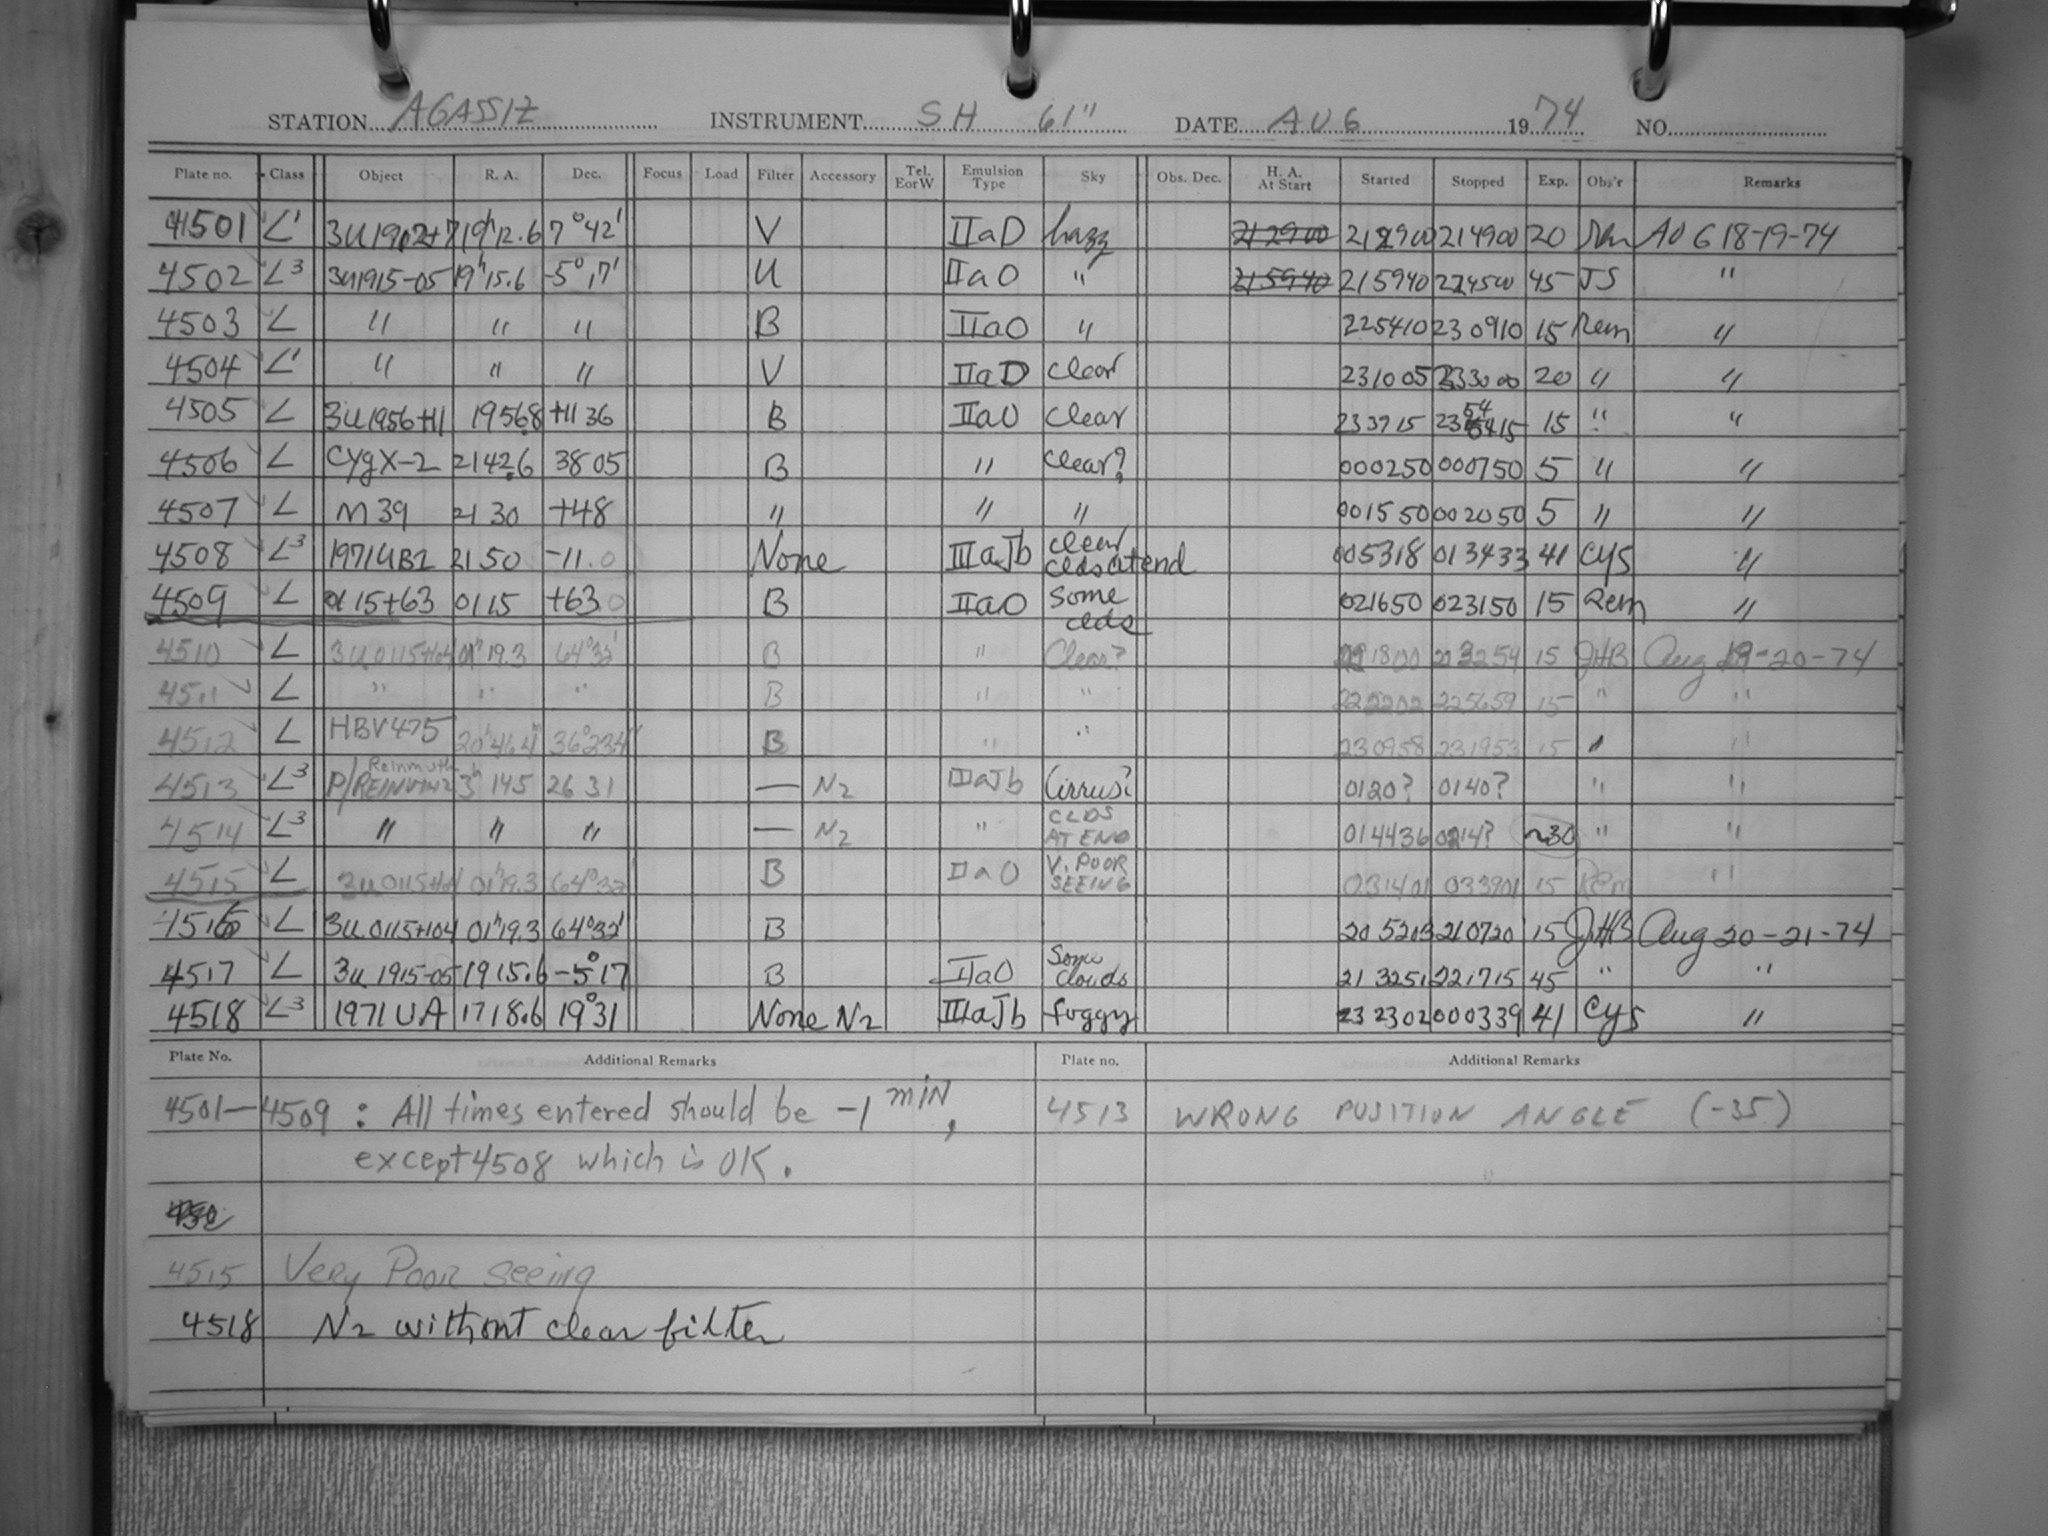 STATION AGASSIZ INSTRUMENT SH 61" DATE AUG 1974 NO.
Plate no. Class Object R. A. Dec. Focus Load Filter Accessory Tel. E or W Emulsion Type Sky Obs. Dec. H. A. At Start Started Stopped Exp. Obs'r Remarks
4501 L' 3U1912+7 19h12.6 7°42' V IIaD hazy 212900 212900 214900 20 Rem AUG 18-19-74
4502 L3 3U1915-05 19h15.6 -5°17' U IIaO " 215940 215940 224500 45 JS "
4503 L " " " B IIaO " 225410 230910 15 Rem "
4504 L' " " " V IIaD clear 231005 233000 20 " "
4505 L 3U1956+11 19568 +11 36 B IIaO clear 233915 235415 15 " "
4506 L CygX-2 2142.6 38 05 B " clear? 000250 000750 5 " "
4507 L M39 21 30 +48 " " " 001550 002050 5 " "
4508 L3 1971UB2 21 50 -11.0 None IIIaJb clear clds at end 005318 013433 41 CYS "
4509 L 0115+63 0115 +63 0 B IIaO some clds 021650 023150 15 Rem "
4510 L 3U0115+64 01h19.3 64°32' B " Clear? 1800 3254 15 JHB Aug 19-20-74
4511 L " " " B " " 225659 15 " "
4512 L HBV475 20h46.4m 36°23.4' B " " 230958 231953 15 " "
4513 L3 P/REINMUTH 2 Reinmuth 3h 145 26 31 — N2 IIIaJb Cirrus? 0120? 0140? " "
4514 L3 " " " — N2 " CLDS AT END 014436 0214? ~30 " "
4515 L 3U0115+64 01h19.3 64°32' B IIaO V. POOR SEEING 031401 033901 15 Rem "
4516 L 3U0115+104 01h19.3 64°32' B 205203 210720 15 JHB Aug 20-21-74
4517 L 3U1915-05 1915.6 -5°17 B IIaO Some clouds 213251 221715 45 " "
4518 L3 1971UA 1718.6 19°31 None N2 IIIaJb foggy 232302 000339 41 CYS "
Plate No. Additional Remarks Plate no. Additional Remarks
4501—4509 : All times entered should be -1 min, 4513 WRONG POSITION ANGLE (-35)
except 4508 which is OK.
4515 Very Poor seeing
4518 N2 without clear filter